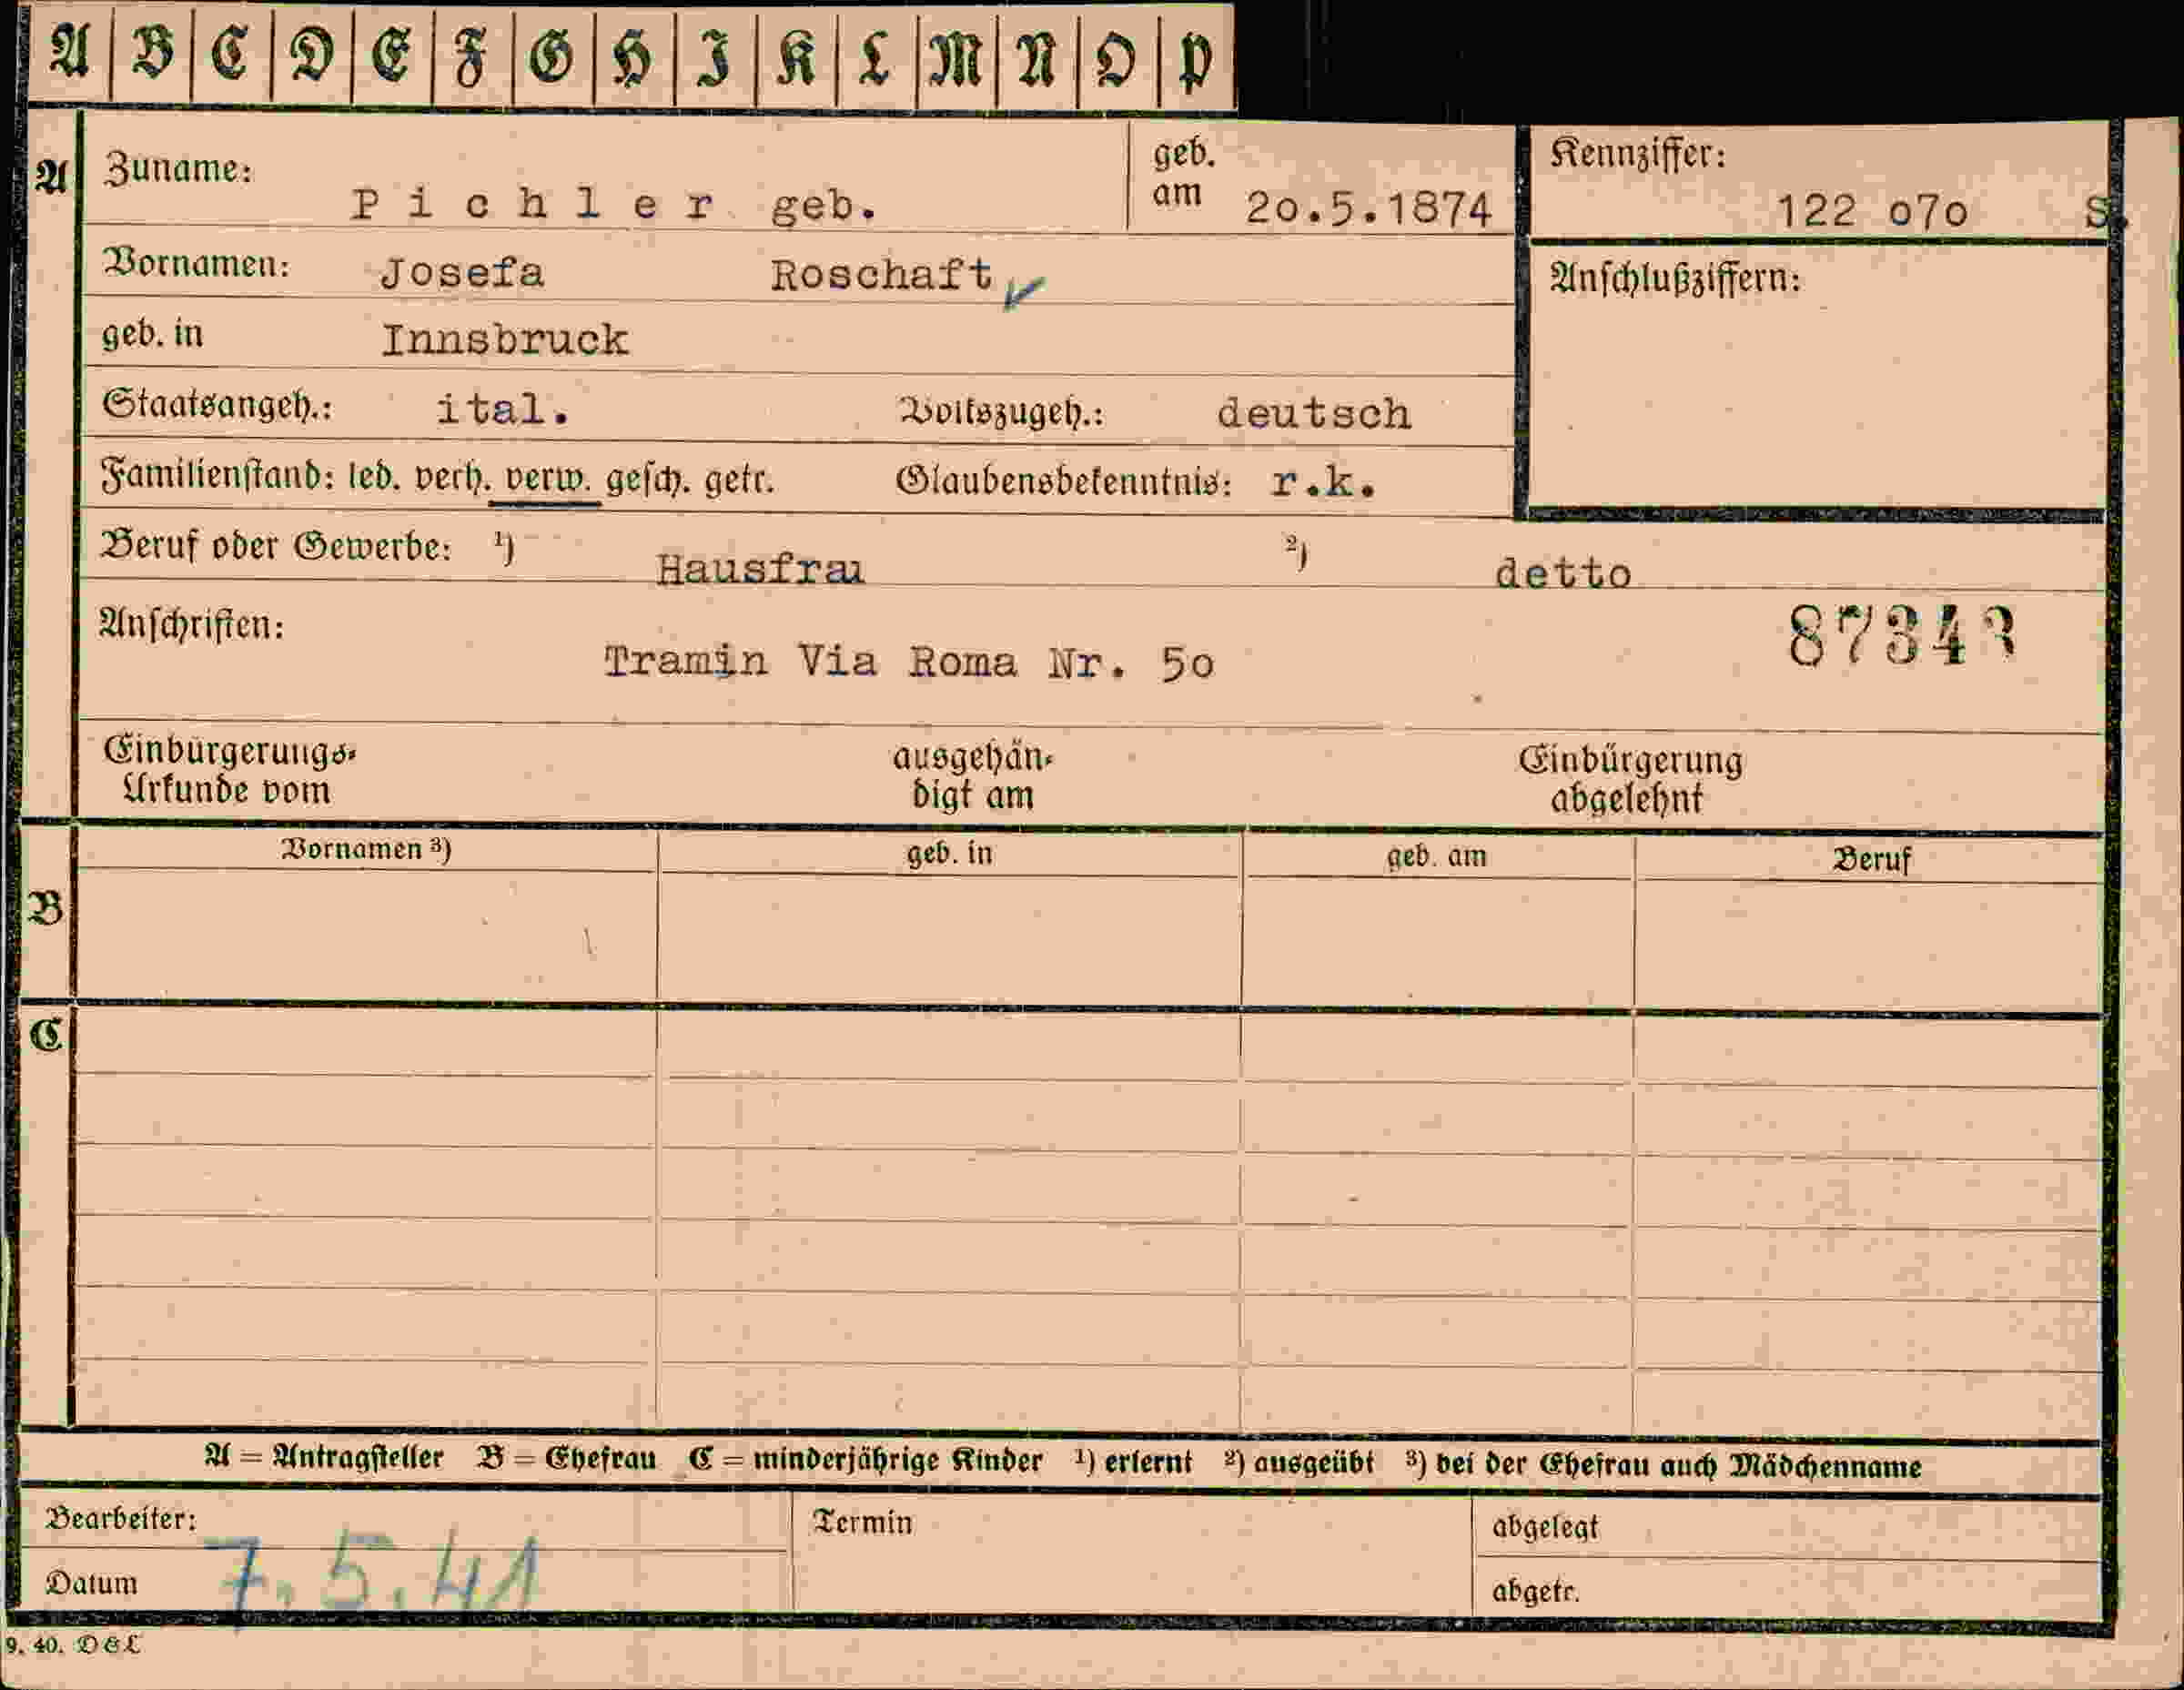 A B C D E F G H I K L M N O P
A Zuname: Pichler geb. geb. am 20.5.1874 Kennziffer: 122 070 S.
Vornamen: Josefa Roschaft Anschlußziffern:
geb. in Innsbruck
Staatsangeh.: ital. Volkszugeh.: deutsch
Familienstand: led. verh. verw. gesch. getr. Glaubensbekenntnis: r.k.
Beruf oder Gewerbe: 1) Hausfrau 2) detto
Anschriften: 87343
Tramin Via Roma Nr. 50
Einbürgerungs- ausgehän- Einbürgerung
Urkunde vom digt am abgelehnt
Vornamen 3) geb. in geb. am Beruf
B
C
A = Antragsteller B = Ehefrau C = minderjährige Kinder 1) erlernt 2) ausgeübt 3) bei der Ehefrau auch Mädchenname
Bearbeiter: Termin abgelegt
Datum 7.5.41 abgetr.
9. 40. D&L